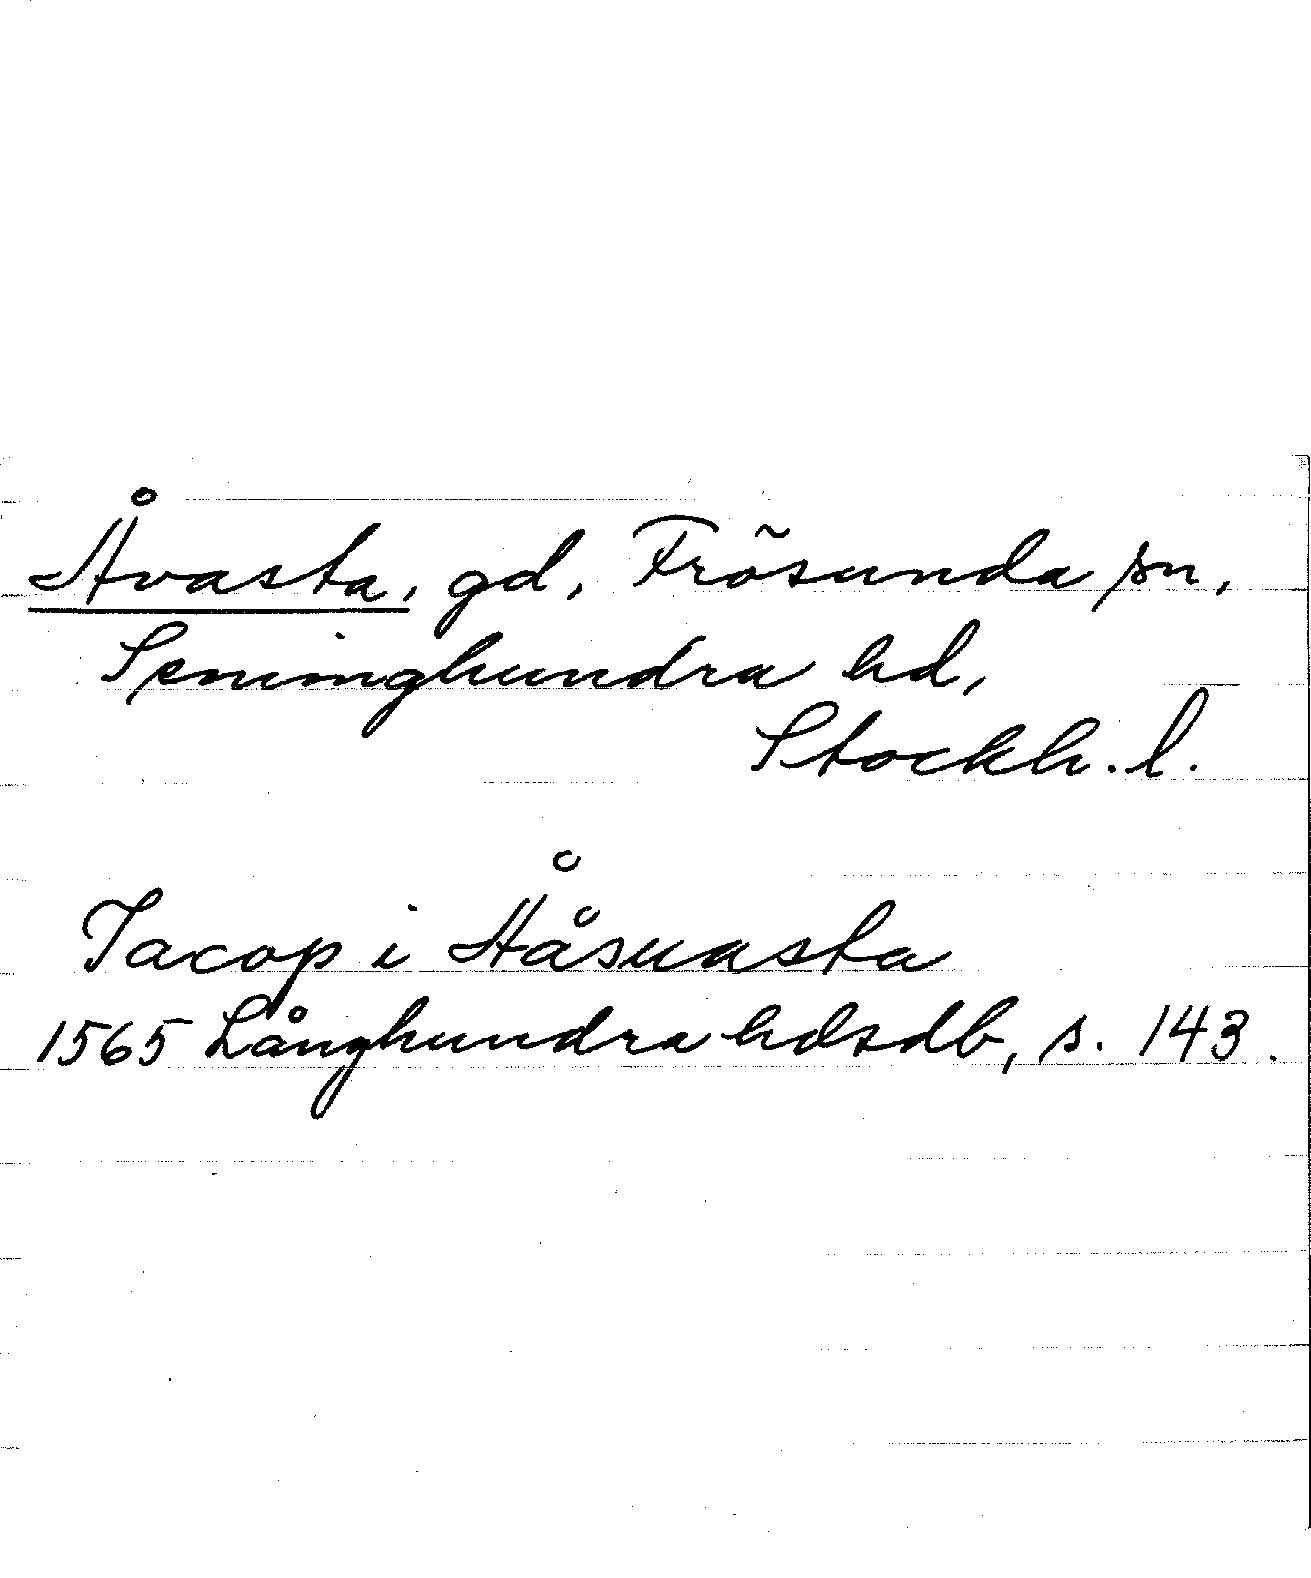 Åvasta, gd, Frösunda sn,
Seminghundra hd,
Stockh. l.
Jacop i Ååsuasta
1565 Långhundra hdsdb, s. 143.